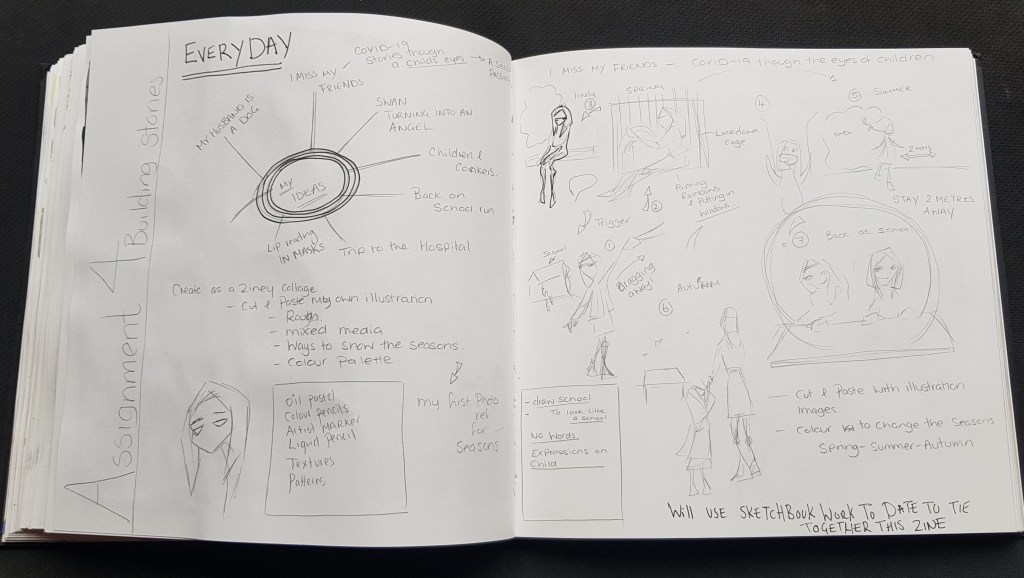 Assignment 4 Building stories
EVERYDAY
COVID-19
stories though
a childs eyes
I MISS MY
FRIENDS
MY HUSBAND IS
A DOG
SWAN
TURNING INTO AN
ANGEL
Children &
Conkers.
Back on
School run
Trip to the Hospital
Lip reading
IN MASKS
MY
IDEAS
Create as a Ziney Collage
- Cut & Paste my own illustration
- Rough
- mixed media
- Ways to show the seasons.
- Colour Palette
Oil pastel
Colour pencils
Artist MARKER
Liquid Pencil
Textures
Patterns
my first
ref
for
Seasons
I MISS MY FRIENDS - COVID-19 though the eyes of children
3
SPRING
Lockdown
cage
4
5 SUMMER
2 mtrs
STAY 2 METRES
AWAY
2
Painting
Rainbows
& Putting in
windows
Trigger
1
School
Dragging
away!
7 Back at School
6 AUTUMN
- draw school
- To look like
a school
No words
Expressions on
Child
- Cut & Paste with illustration
Images
- Colour to change the Seasons
Spring-Summer-Autumn
Will USE SKETCHBOOK WORK TO DATE TO TIE
TOGETHER THIS ZINE